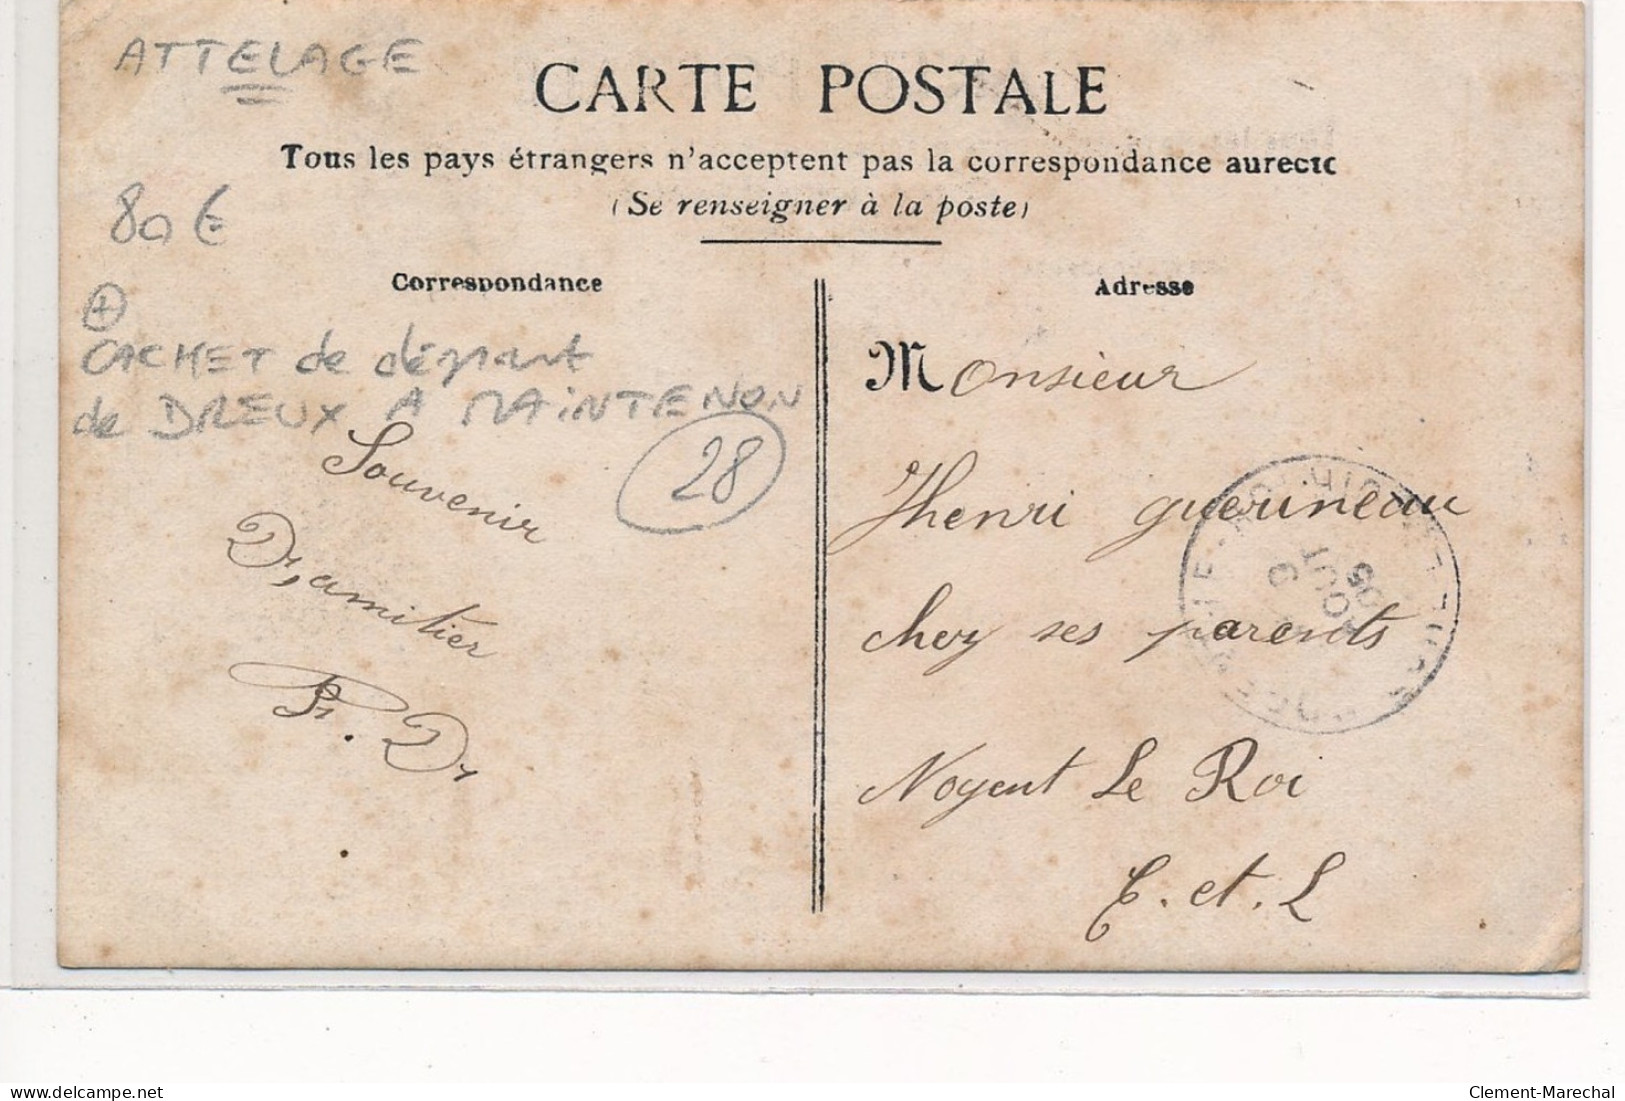 ATTELAGE
CARTE POSTALE
Tous les pays étrangers n'acceptent pas la correspondance au recto
(Se renseigner à la poste)
80 €
Correspondance
Adresse
+
CACHET de départ
de DREUX A MAINTENON
28
Souvenir
D'amitier
P. D
Monsieur
Henri guerineau
chez ses parents
Nogent Le Roi
E. et. L
AOUT
05
delcampe.net
Clement-Marechal